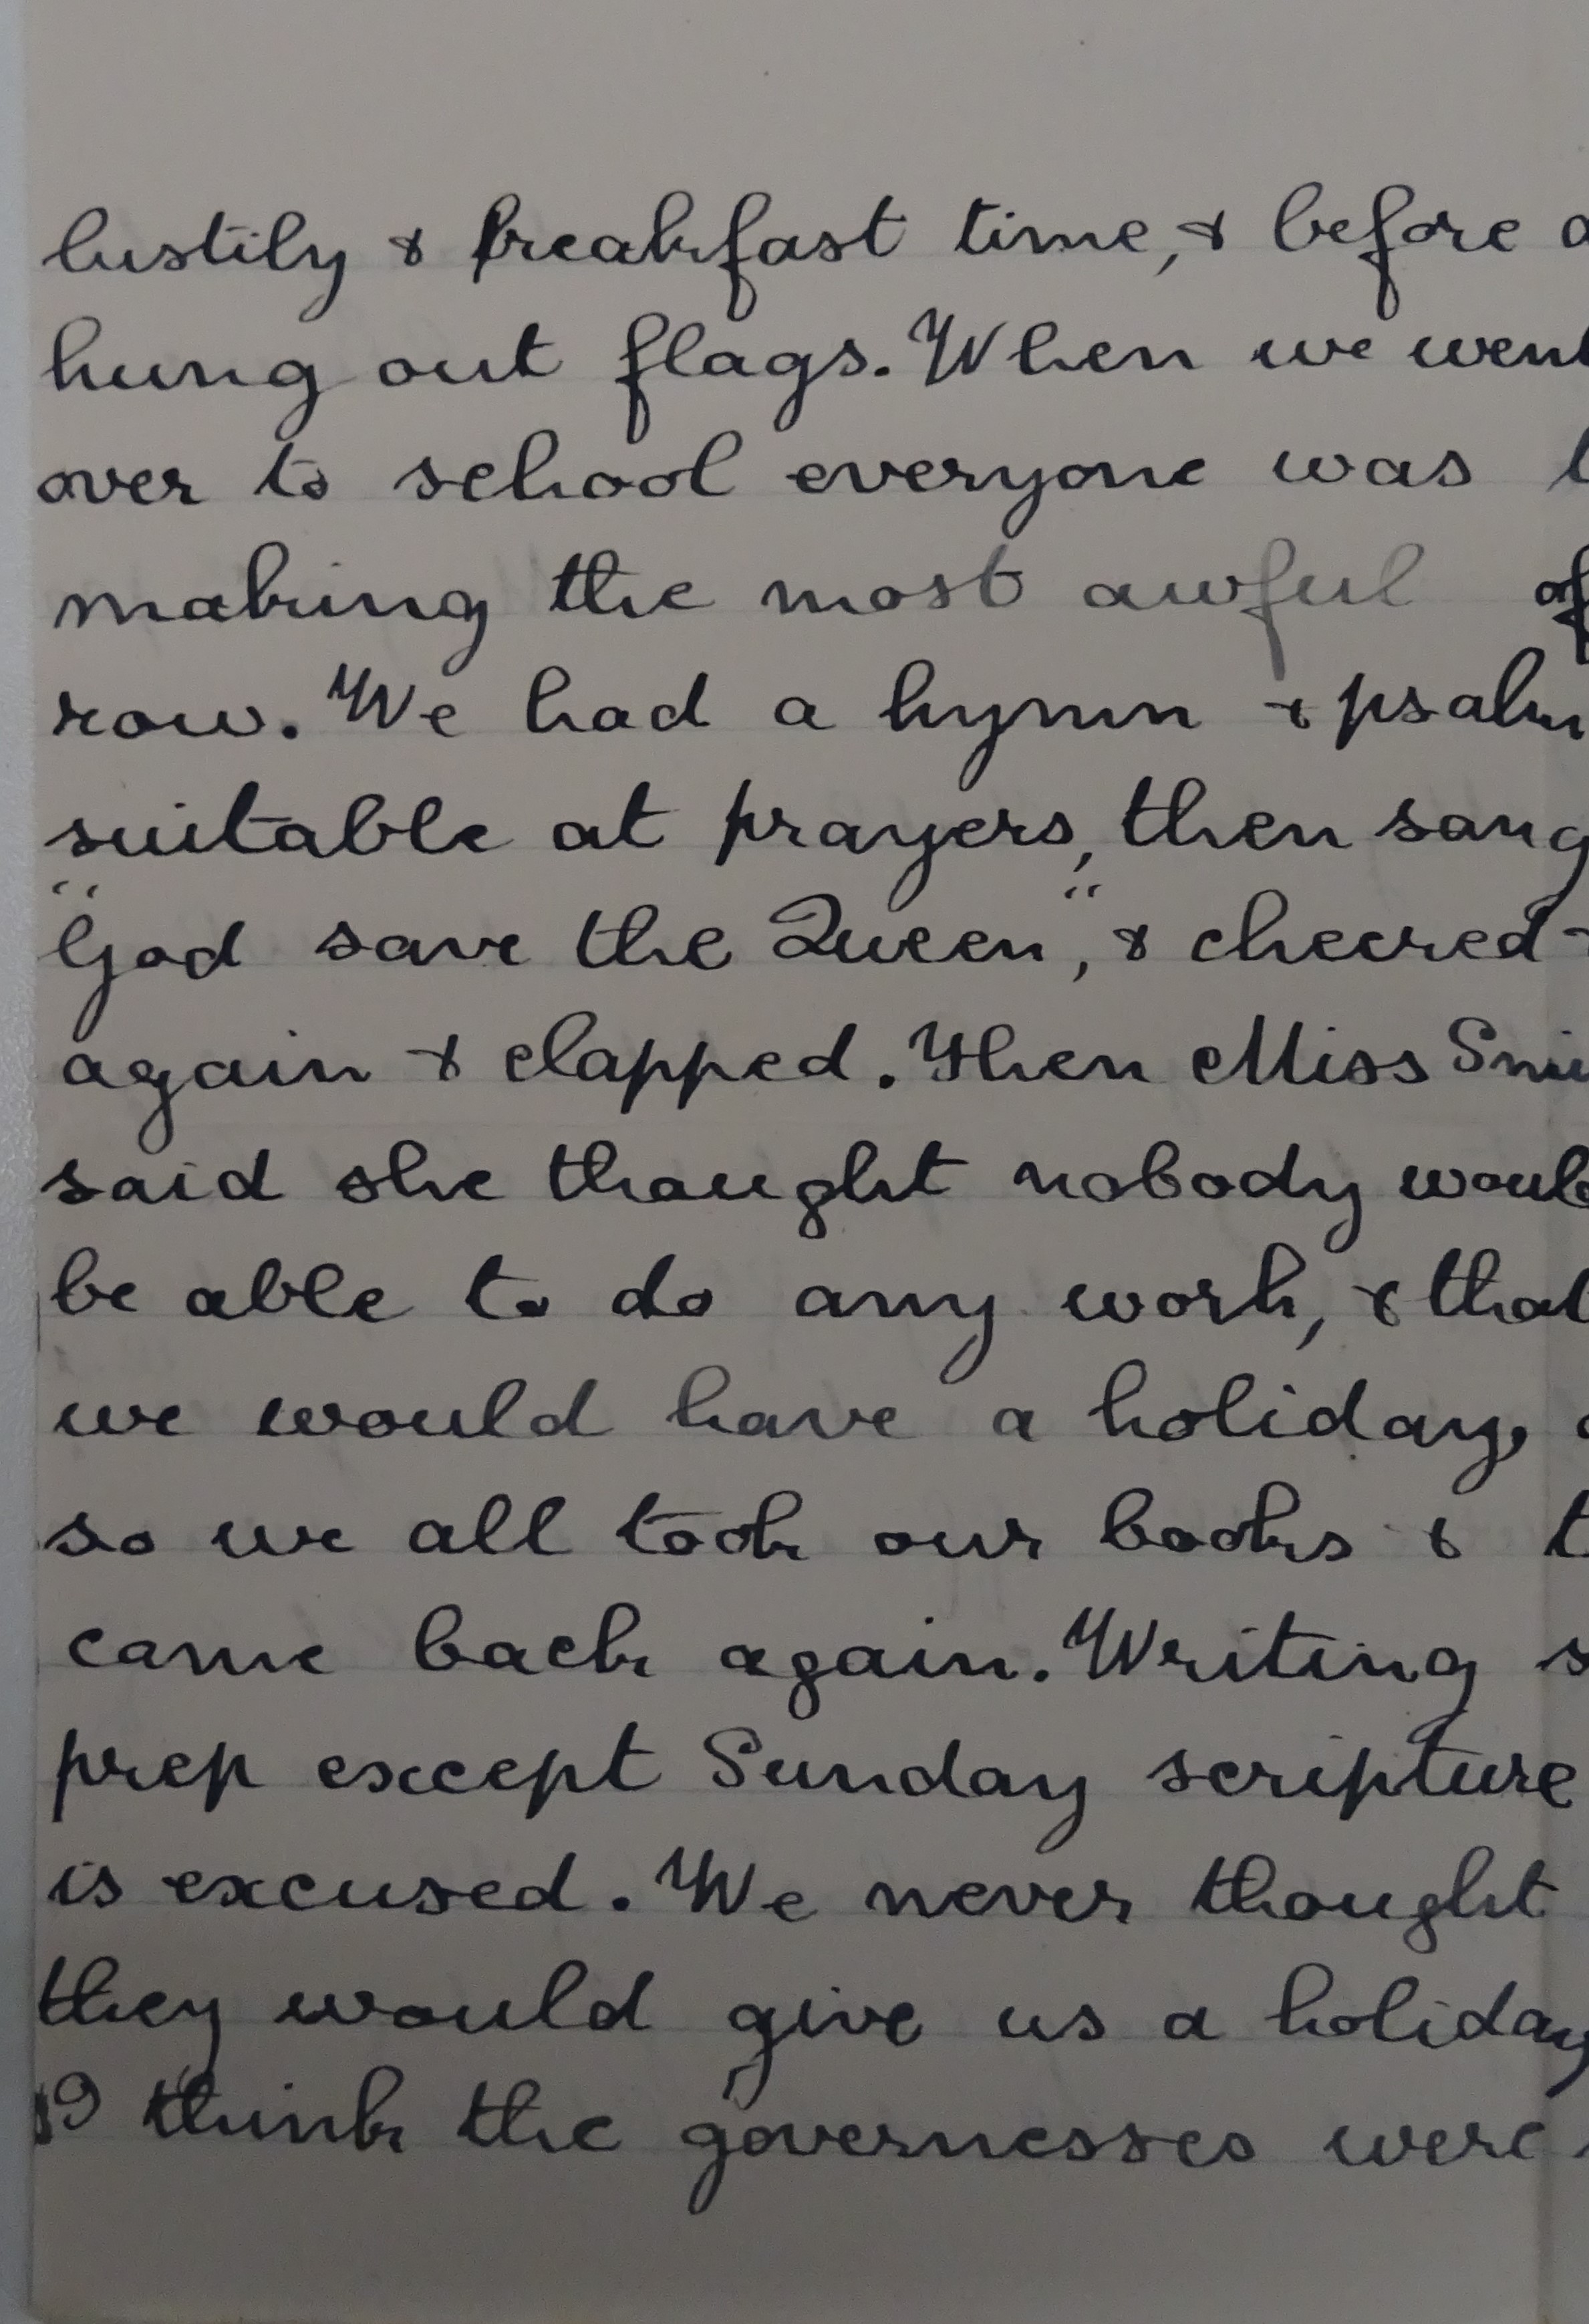 lustily & breakfast time, & before
hung out flags. When we went
over to school everyone was
making the most awful
row. We had a hymn & psalm
suitable at prayers, then sang
"God save the Queen", & cheered
again & clapped. Then Miss
said she thought nobody would
be able to do any work, & that
we would have a holiday,
so we all took our books &
came back again. Writing
prep except Sunday scripture
is excused. We never thought
they would give us a holiday
I think the governesses were